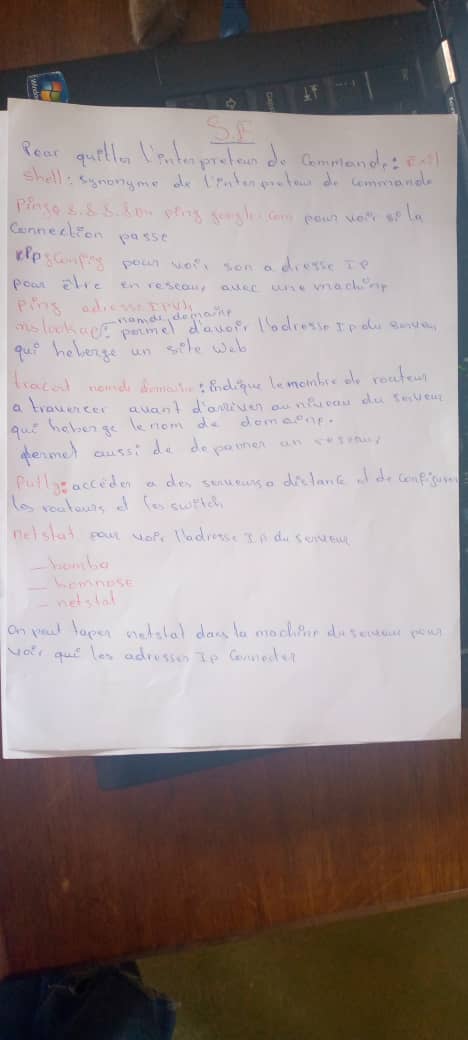 S.E
Pour quitter l'interpreteur de Commande: Exit
Shell: synonyme de l'interpreteur de commande
Ping 8.8.8.8 ou ping google.com pour voir si la
Connection passe
ipconfig pour voir son adresse IP
pour être en reseau, avec une machine
Ping adresse IPV4
nslookup: nom de domaine
permet d'avoir l'adresse Ip du serveur
qui heberge un site Web
tracert nom de domaine: indique le nombre de routeur
a traverser avant d'arriver au niveau du serveur
qui heberge le nom de domaine.
permet aussi de depanner un reseau
Putty: accéder a des serveurs a distance et de configurer
les routeurs et les switch
netstat pour voir l'adresse IP du serveur
- bomba
- homnose
- netstat
On peut taper netstat dans la machine du serveur pour
voir qui les adresses Ip Connecter